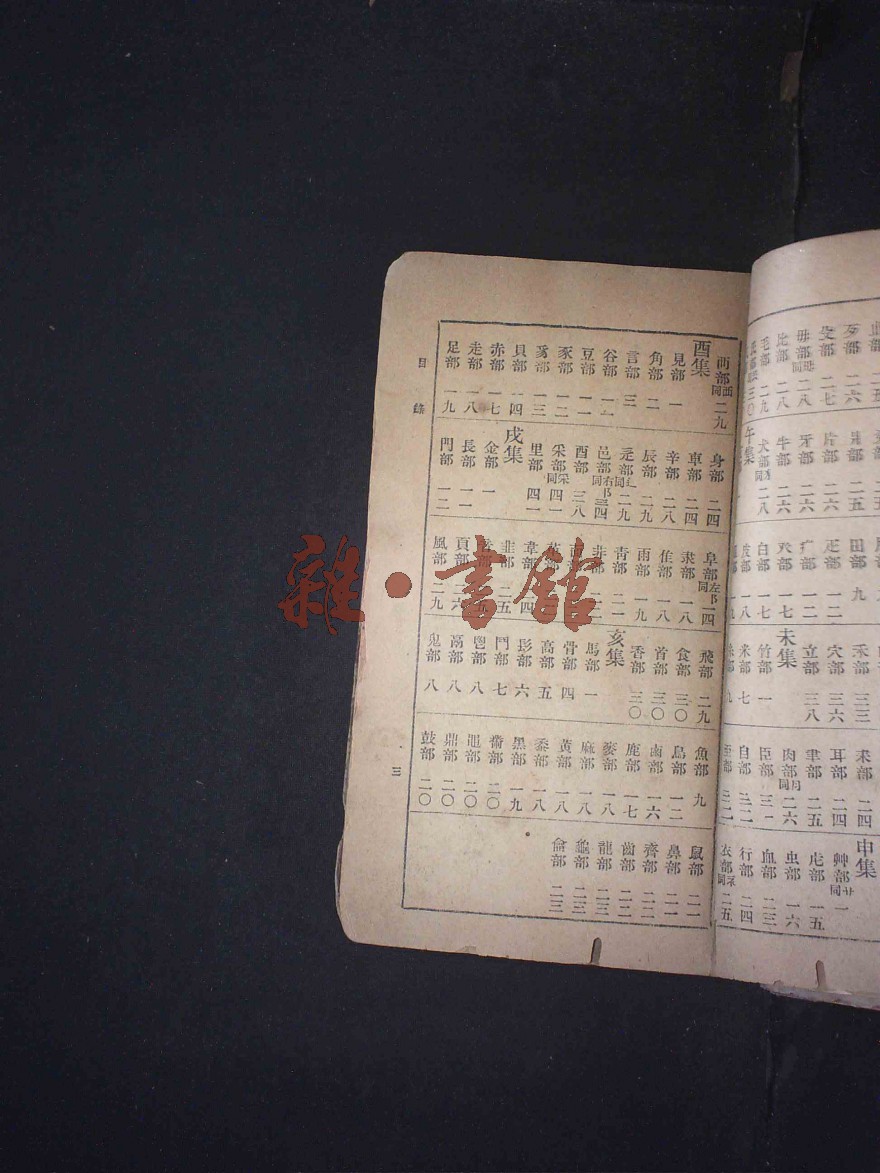 歹部 二六
殳部 二七
毋部 二八
比部 二八
毛部 二九
片部 二六
牙部 二六
牛部 二六
犬部 二八
午集
田部 九
疋部 一二
疒部 一二
癶部 一七
白部 一七
皮部 一八
禾部 三三
穴部 三六
立部 三八
未集
竹部 一
米部 七
耒部 二四
耳部 二四
聿部 二五
肉部月同 二六
臣部 三一
自部 三二
至部 三二
申集
艸部艹同 一
虍部 一五
虫部 一六
血部 二三
行部 二四
衣部衤同 二五
襾部西同 二九
酉集
見部 一
角部 二
言部 三
谷部 一一
豆部 一一
豕部 一二
豸部 一三
貝部 一四
赤部 一七
走部 一八
足部 一九
身部 二四
車部 二四
辛部 二八
辰部 二九
辵部辶同 二九
邑部右阝同 三四
酉部 三八
釆部 四一
里部 四一
戌集
金部 一
長部 一一
門部 一二
阜部左阝同 一四
隶部 一八
隹部 一八
雨部 一九
靑部 二一
非部
韋部 二四
韭部 二五
頁部 二六
風部 二九
飛部 二九
食部 三〇
首部 三〇
香部 三〇
亥集
馬部 一
骨部 四
高部 五
髟部 六
鬥部 七
鬯部 八
鬲部 八
鬼部 八
魚部 九
鳥部 一二
鹵部 一六
鹿部 一七
麥部 一八
麻部 一八
黄部 一八
黍部 一八
黑部 一九
黹部 二〇
黽部 二〇
鼎部 二〇
鼓部 二〇
鼠部 二一
鼻部 二一
齊部 二一
齒部 二二
龍部 二三
龜部 二三
龠部 二三
目錄
三
雜·書館